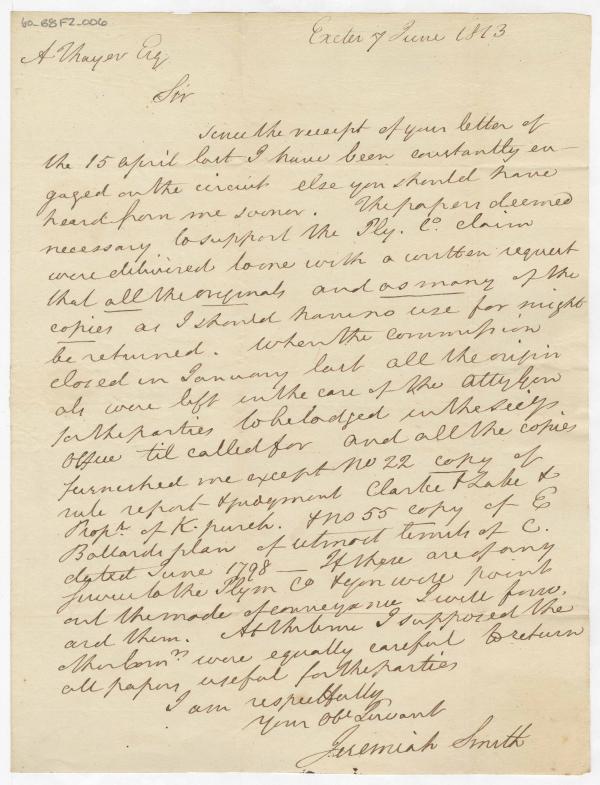 60-BBFZ-006
Exeter 7 June 1813
A Thayer Esq
Sir
Since the receipt of your letter of
the 15 april last I have been constantly en-
gaged on the circuit else you should have
heard from me sooner. The papers deemed
necessary to support the Ply. Co. claim
were delivered to me with a written request
that all the originals and as many of the
copies as I should have no use for might
be returned. When the commission
closed in January last all the origin
als were left in the care of the Atty Gen
for the parties to be lodged in the Secy's
office til called for and all the copies
furnished me except No 22 copy of
rule report & judgment Clarke & Lake &
Propr. of K. purch. & No 55 copy of E
Ballards plan of utmost limits of C.
dated June 1798 — If these are of any
service to the Plym Co & you were point
out the mode of conveyance I will forw.
ard them. At the time I supposed the
other Comrs were equally careful to return
all papers useful for the parties
I am respectfully
Your Obt Servant
Jeremiah Smith